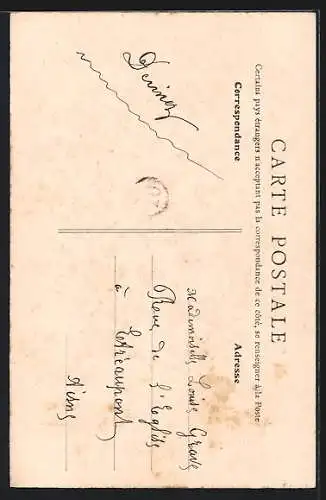 CARTE POSTALE
Certains pays étrangers n'acceptant pas la correspondance de ce côté, se renseigner à la Poste
Correspondance
Adresse
Mademoiselle Louise Grave
Rue de l'Eglise
à Etréaupont
Aisne